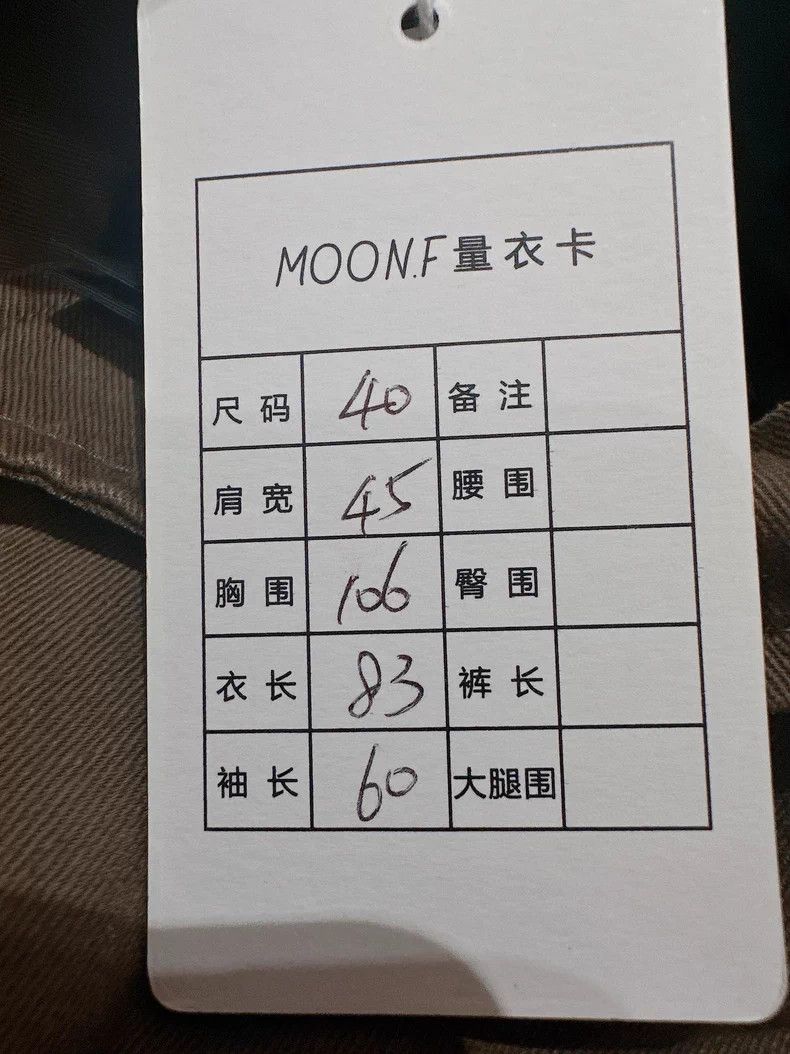 MOON.F量衣卡
尺码 40 备注
肩宽 45 腰围
胸围 106 臀围
衣长 83 裤长
袖长 60 大腿围